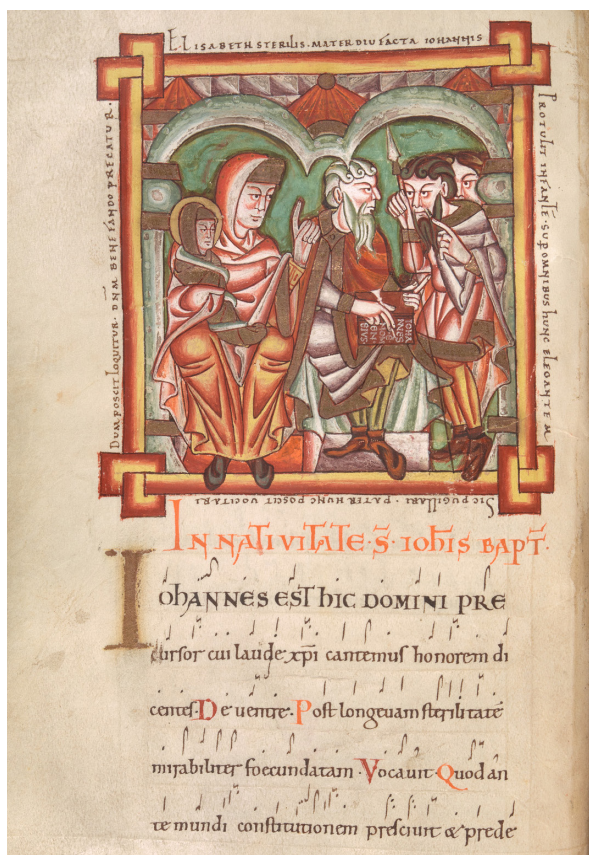 ELISABETH STERILIS · MATER DIU FACTA IOHANNIS
PROTULIT INFANTĒ SUP OMNIBUS HUNC ELEGANTEM
DUM POSCIT LOQUITUR · DNM BENE FANDO PRECATUR ·
SIC PUGILLARI · PATER HUNC POSCIT VOCITARI
IOHA
NNES
NOM
EN
EIUS
IN NATIVITATE · S̄ · IOHIS BAPT̄ ·
IOHANNES EST HIC DOMINI PRE
cursor cui laude xp̄i cantemus honorem di
centes · De ventre · Post longevam sterilitatē
mirabiliter foecundatam · Vocavit · Quod an
te mundi constitutionem prescivit & prede